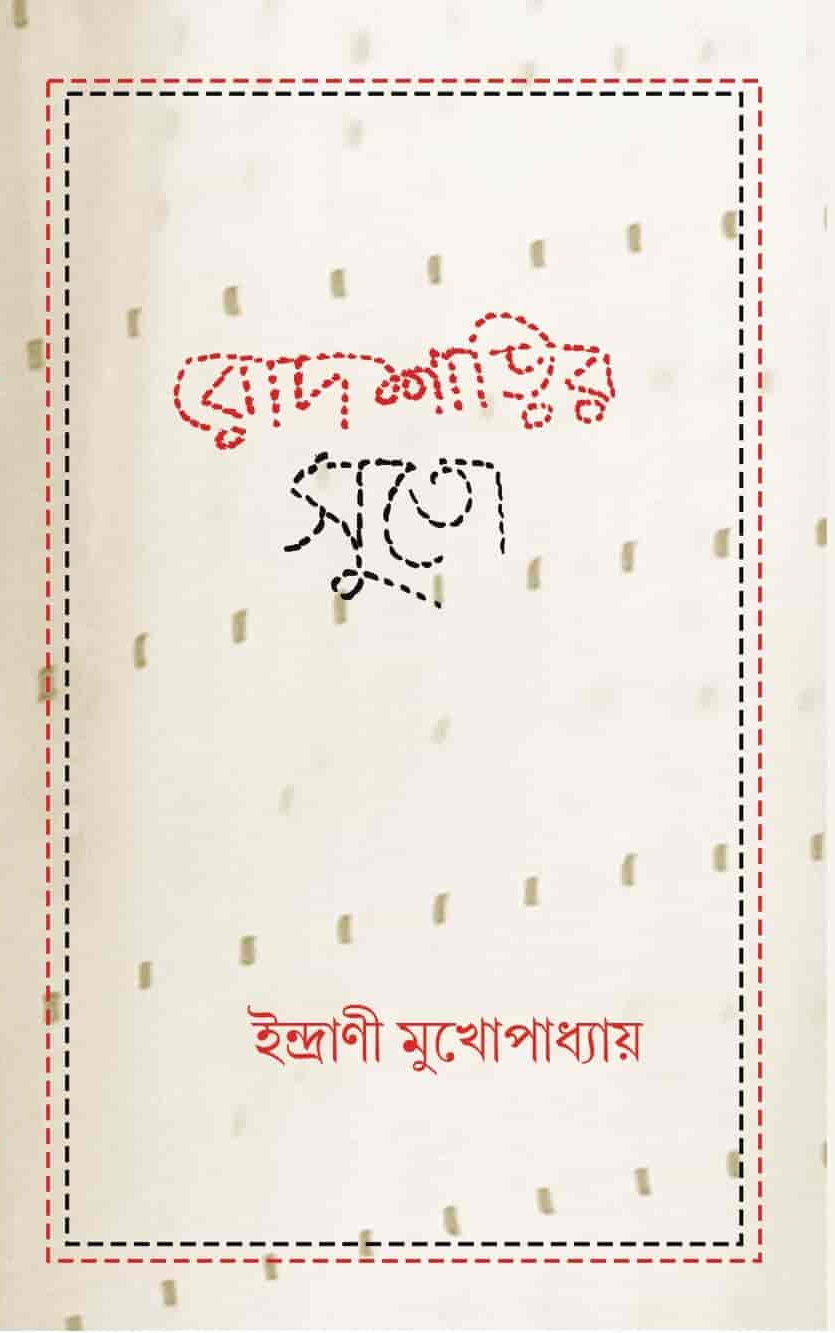 রোদ শাড়ির
সুতো
ইন্দ্রাণী মুখোপাধ্যায়